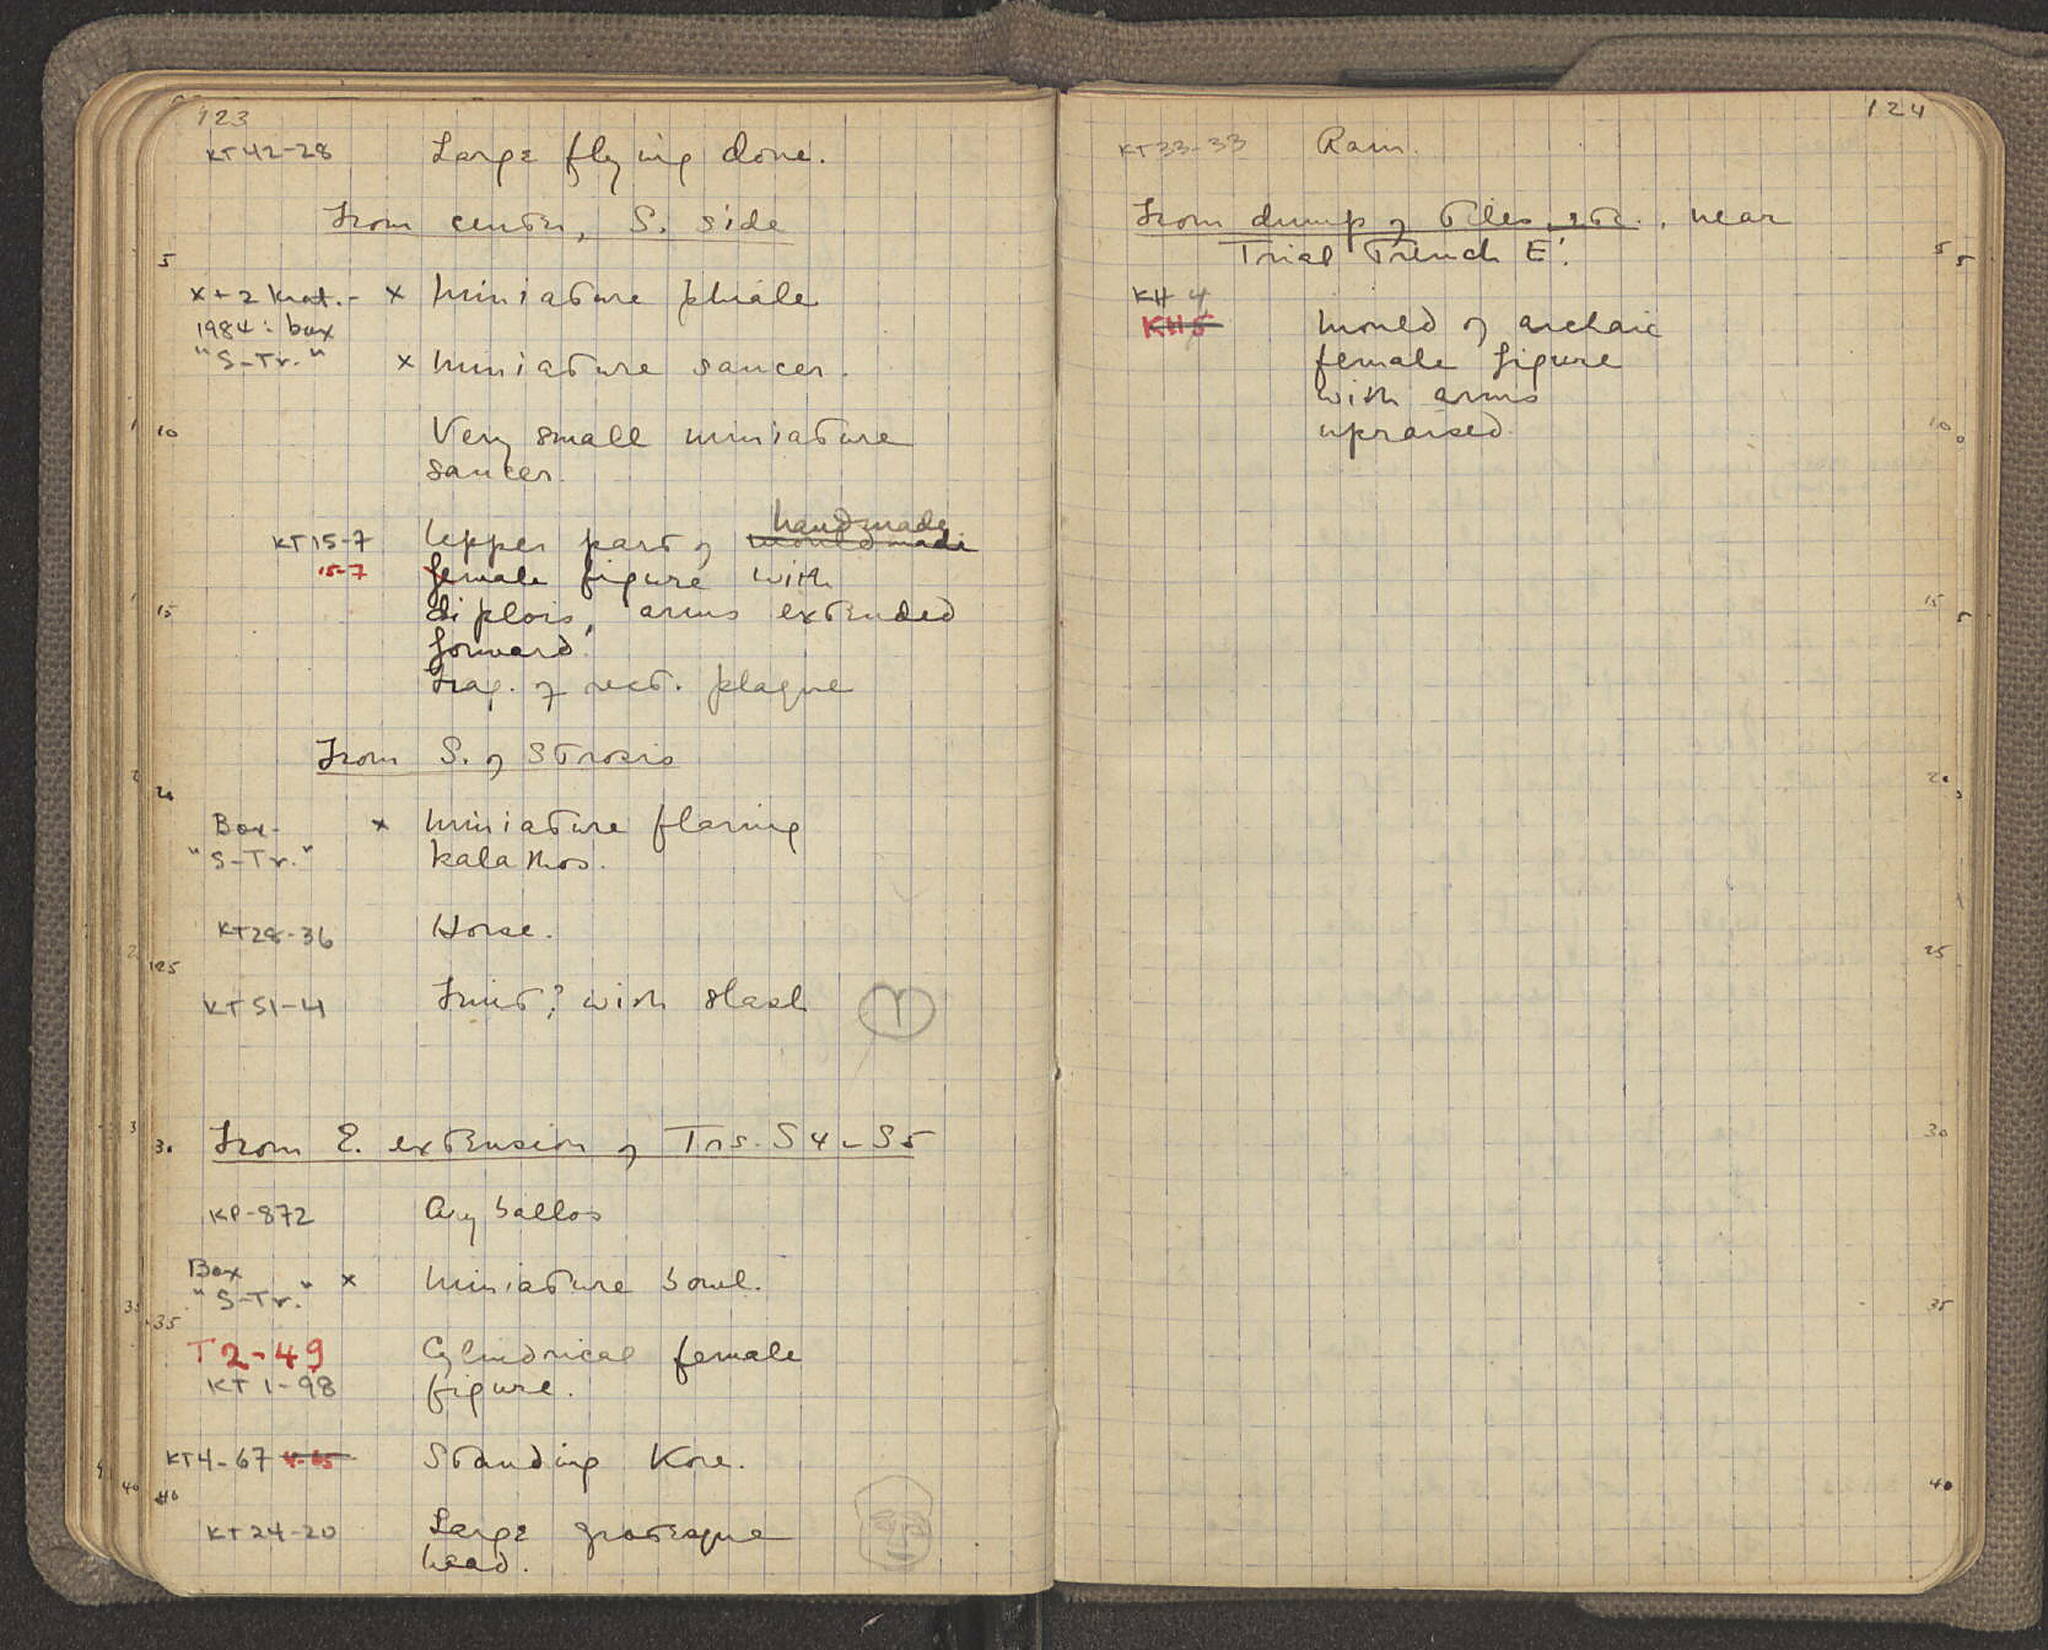 123
KT42-28 Large flying dove.
From center, S. side
5
x + 2 krat. - x Miniature phiale
1984: box
"S-Tr." x Miniature saucer.
10 Very small miniature
saucer.
handmade
KT15-7 Upper part of mouldmade
15-7 female figure with
15 diplois, arms extended
forward.
Frag. of rect. plaque
From S. of Strosis
20
Box- x Miniature flaring
"S-Tr." kalathos.
KT28-36 Horse.
25
KT51-4 Fruit? with slash
30 From E. extension of Trs. S4-S5
KP-872 Aryballos
Box x Miniature bowl.
"S-Tr."
35
T2-49 Cylindrical female
KT1-98 figure.
KT4-67 Standing Kore.
40
KT24-20 Large grotesque
head.
124
KT33-33 Ram.
From dump of tiles, etc., near
Trial Trench E.
5
KH 4
KH5 Mould of archaic
female figure
with arms
upraised.
10
15
20
25
30
35
40